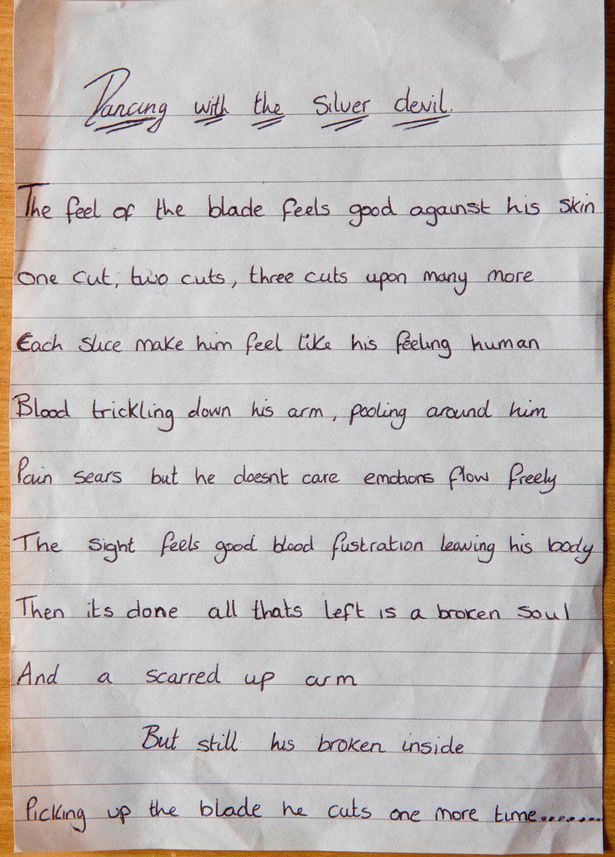 Dancing with the Silver devil.
The feel of the blade feels good against his skin
One cut, two cuts, three cuts upon many more
Each slice make him feel like his feeling human
Blood trickling down his arm, pooling around him
Pain sears but he doesnt care emotions flow freely
The sight feels good blood fustration leaving his body
Then its done all thats left is a broken soul
And a scarred up arm
But still his broken inside
Picking up the blade he cuts one more time........